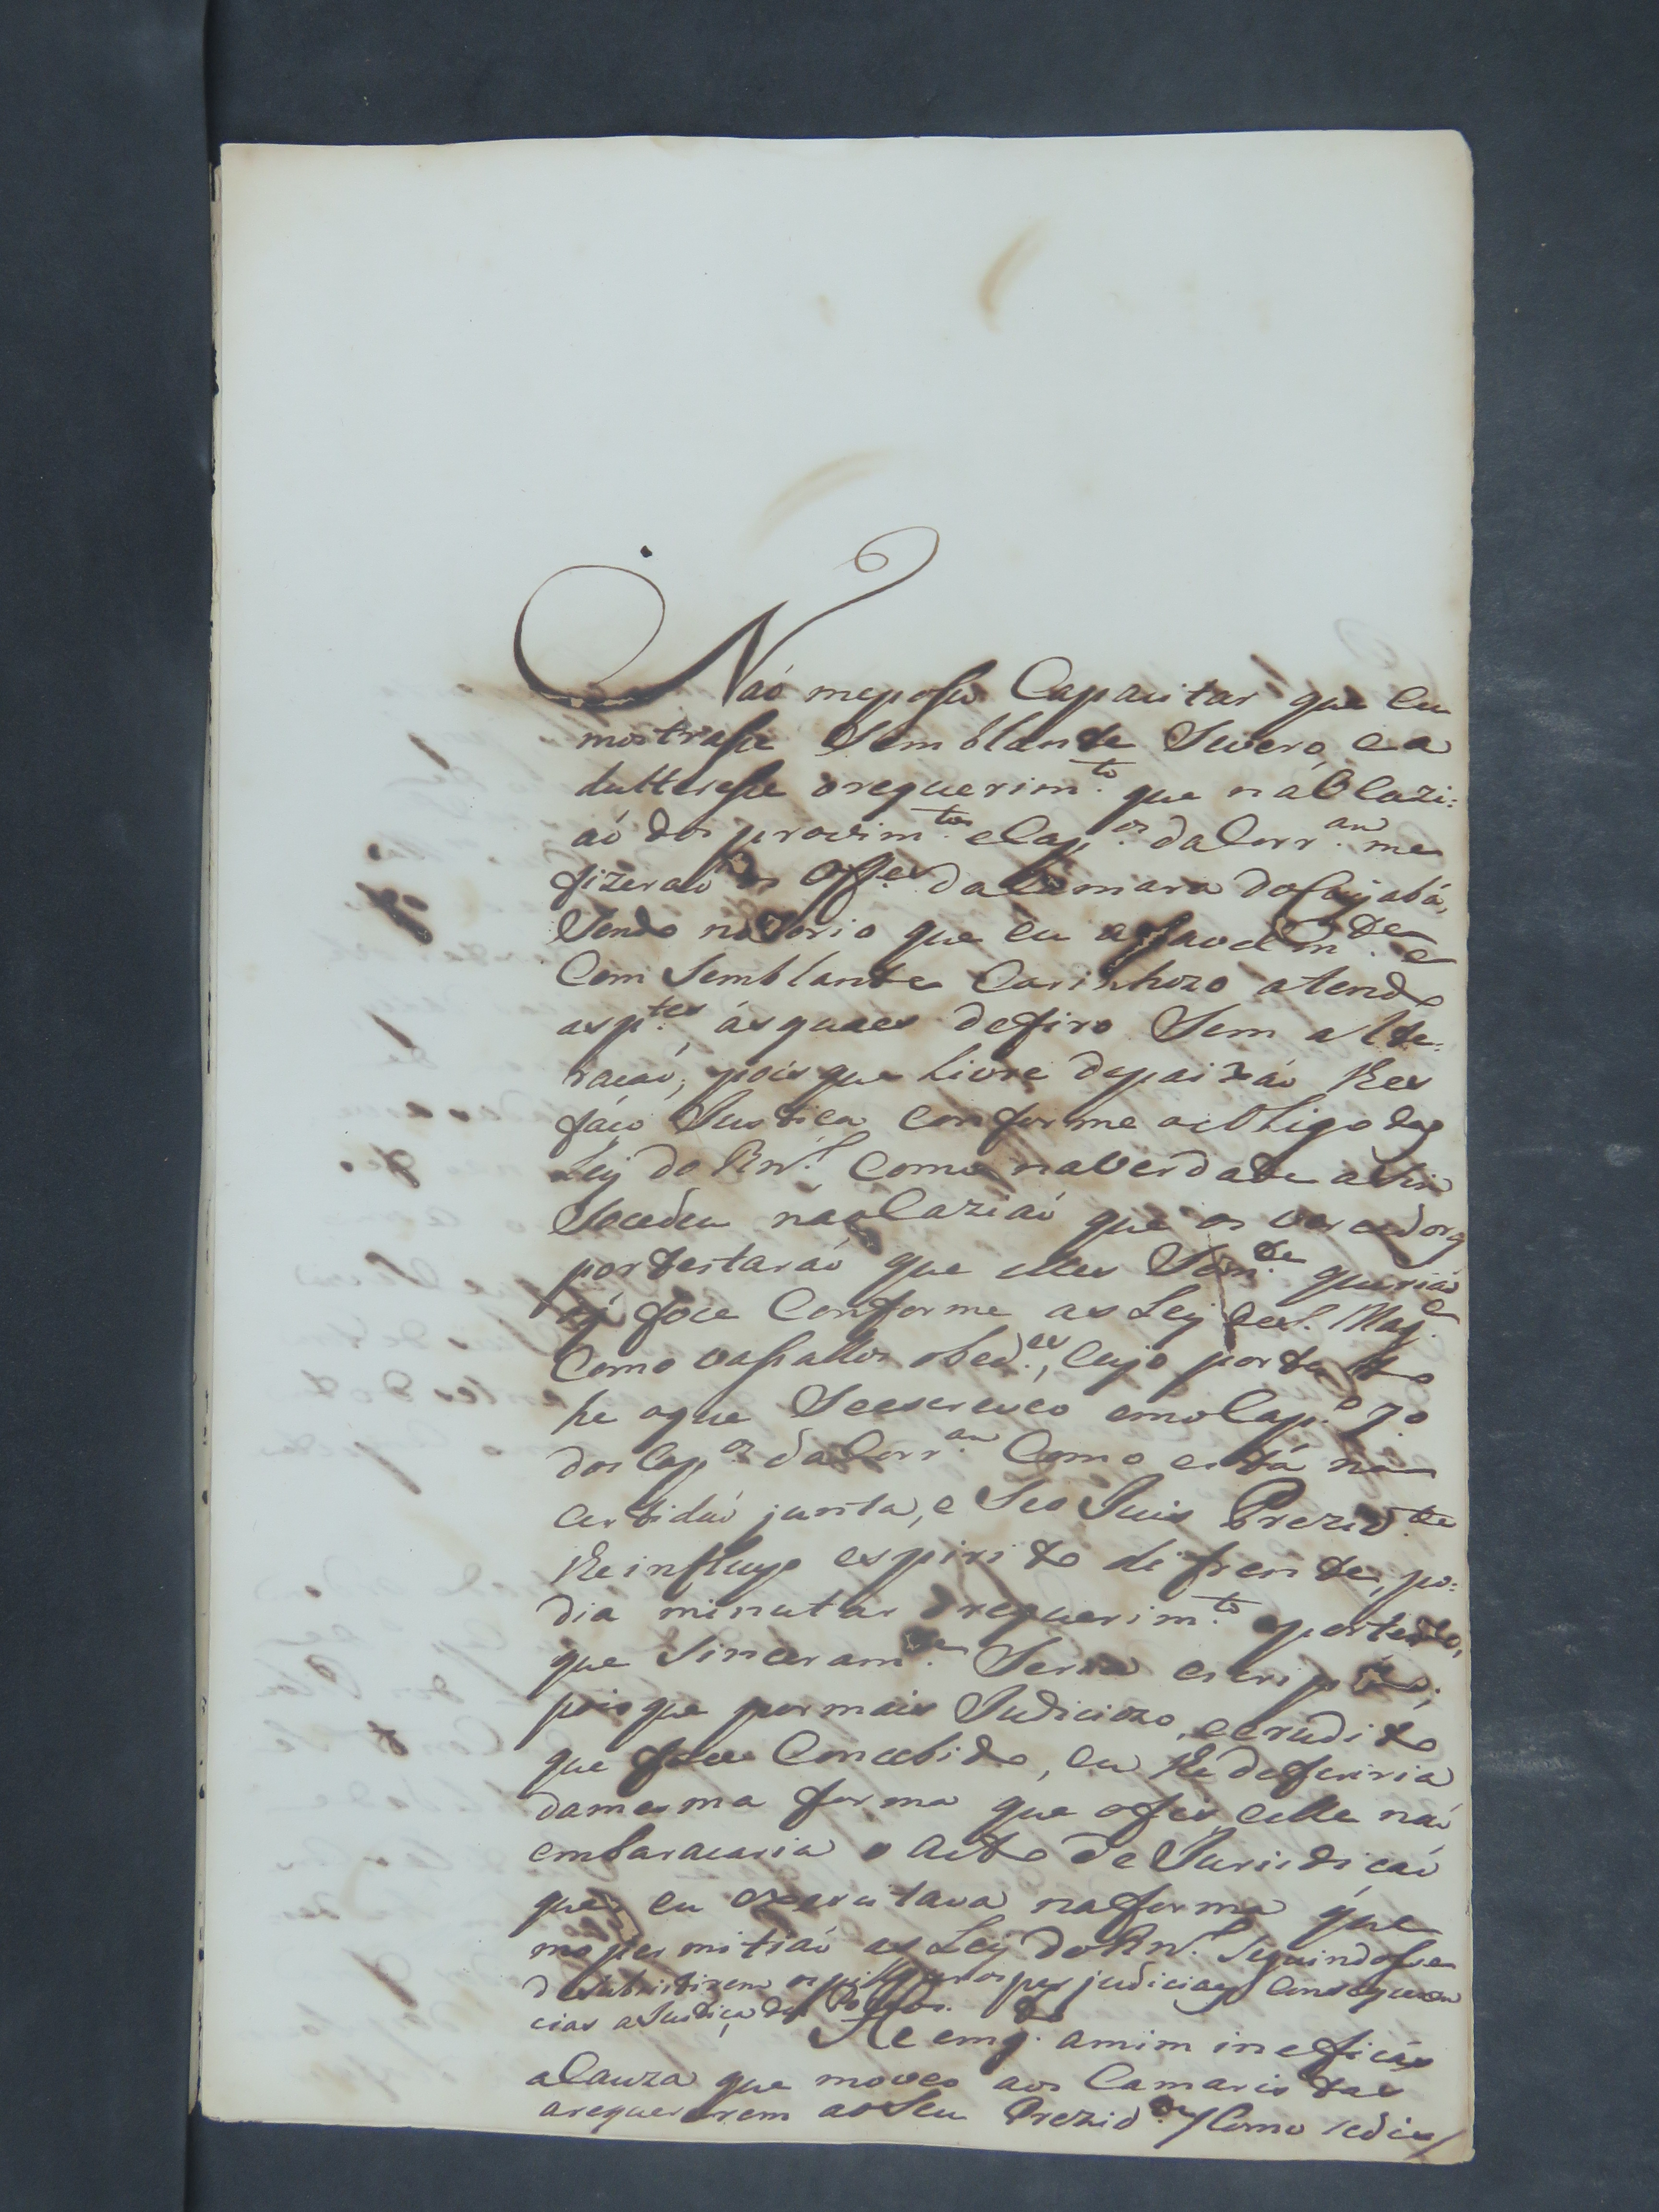 Naó meposso Capacitar que eu
mostrasse Semblante Severo, e a
dulterasse orequerim.to que naOcazi:
aó dos provim.tos eCap.os daCorr.am me
fizeraó os Off.es daCamara doCuyabá,
Sendo notorio que eu afavelm.de e
Com Semblante Carinhozo atendo
asp.tes, ásquaes defiro Sem alte:
racaó, poisque livre depaixaó lhes
faço Justica conforme aobligo das
Ley do Rn.l Como naverdade assim
Socedeu naoCaziaó que os vereadores
portestaraó que elles Som.te queriaó
foce Conforme as Ley deS. Mag.e
Como vassallos obed.es, Cujo portesto
he oque Seescreveo emoCap.o 7.o
dos Cap.os daCorr.am Como está na
certidaó junta, e Seo Juis Prezid.te
lheinfluyo espirito difrente, po:
dia minutar orequerim.to oportesto,
que Sinceram.e Seria escripto;
poisque pormais Judiciozo, eerudito
que foce Concebido, eu lhe defiriria
damesma forma que ofes, eelle naó
embaracaria o acto de Juridicaó
que eu exercitava naforma que
mepermitiaó as Ley doRn.l Seguindosse
desubsistirem os perjudiciaes consequen
cias aJustiça dos Póvos.
He emq.to amim ineficás
aCauza que moveo aos Camaristas
arequererem aoSeu Prezid.te /Como sedis/